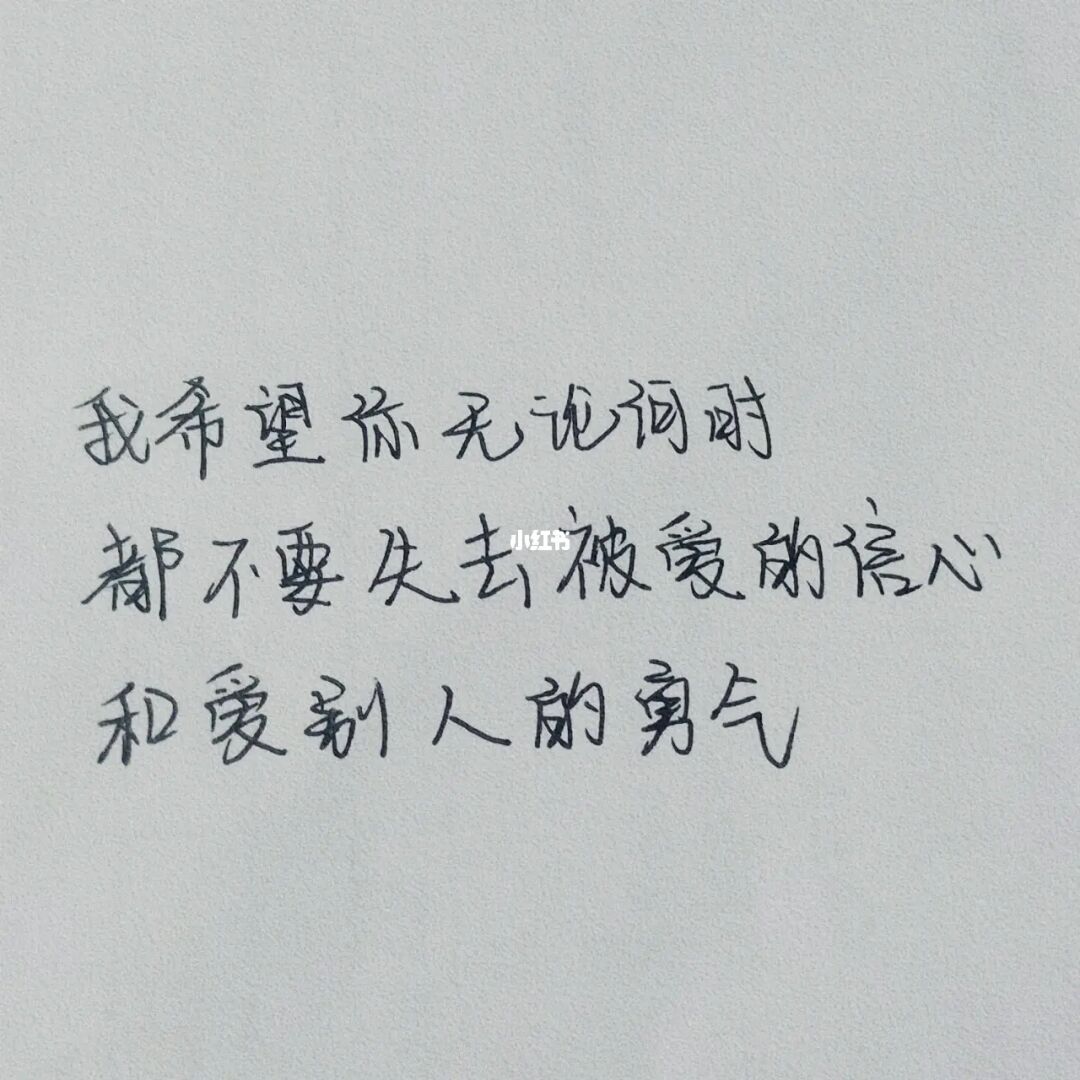 我希望你无论何时
都不要失去被爱的信心
和爱别人的勇气
小红书